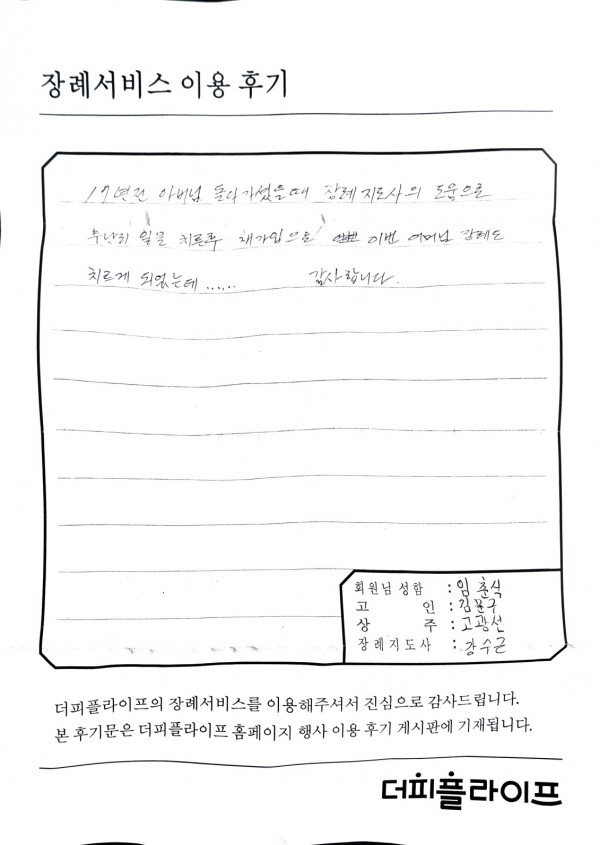 장례서비스 이용 후기
17년전 아버님 돌아가셨을때 장례지도사의 도움으로
무난히 일을 치른후 재가입으로 이번 어머님 장례도
치르게 되었는데...... 감사합니다.
회원님 성함 : 임춘식
고 인 : 김문구
상 주 : 고광선
장례지도사 : 강수근
더피플라이프의 장례서비스를 이용해주셔서 진심으로 감사드립니다.
본 후기문은 더피플라이프 홈페이지 행사 이용 후기 게시판에 기재됩니다.
더피플라이프